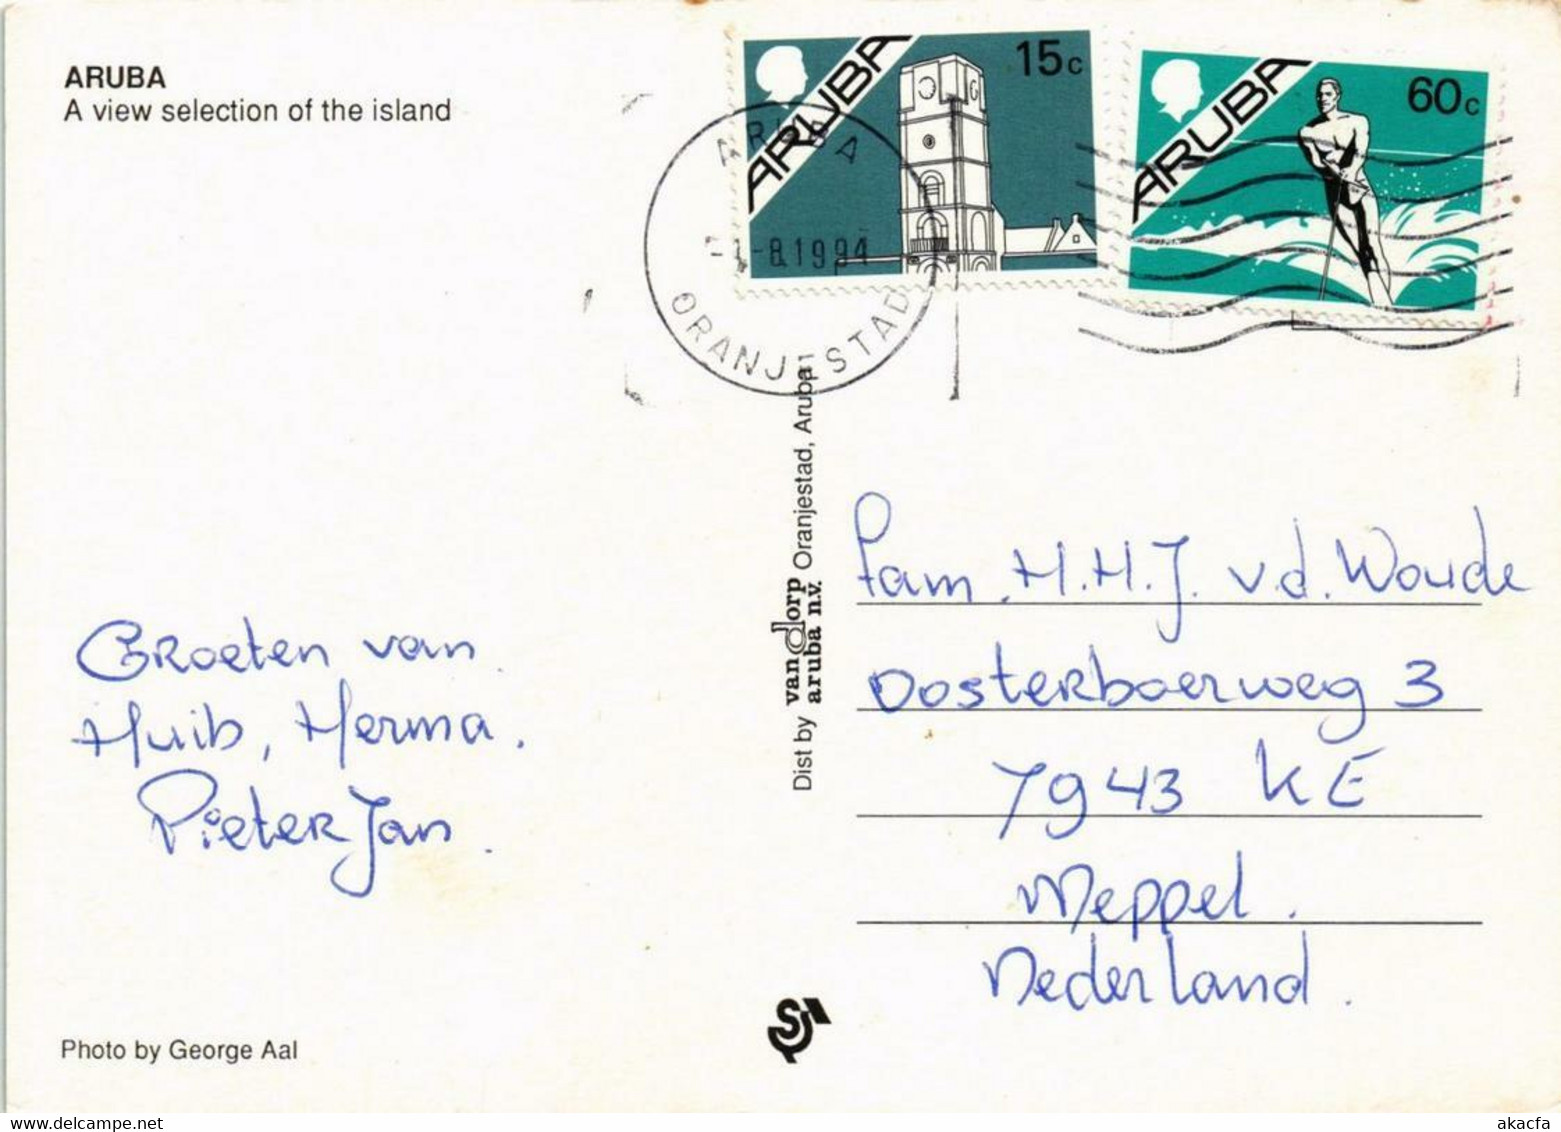 ARUBA
A view selection of the island
15c
ARUBA
60c
ARUBA
ARUBA
-1-8.1994
ORANJESTAD
Groeten van
Huib, Herma.
Pieter Jan.
Dist by van dorp aruba n.v. Oranjestad, Aruba
Fam. H.H.J. v.d. Woude
Oosterboerweg 3
7943 KE
Meppel.
Nederland.
Photo by George Aal
delcampe.net
akacfa